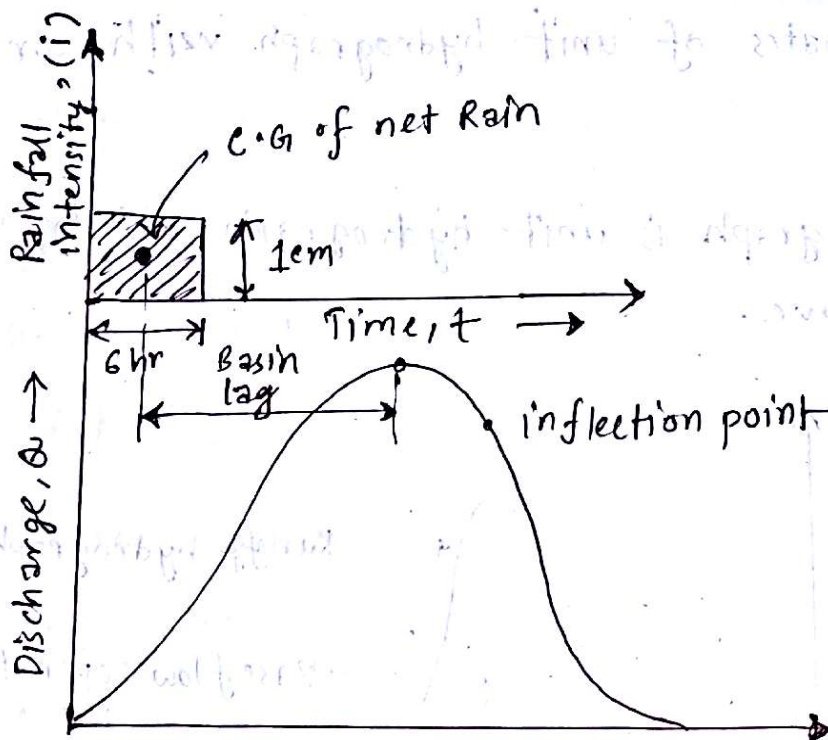 Rainfall
intensity, (i)
C.G of net Rain
1cm
Time, t →
6hr
Basin
lag
inflection point
Discharge, Q →